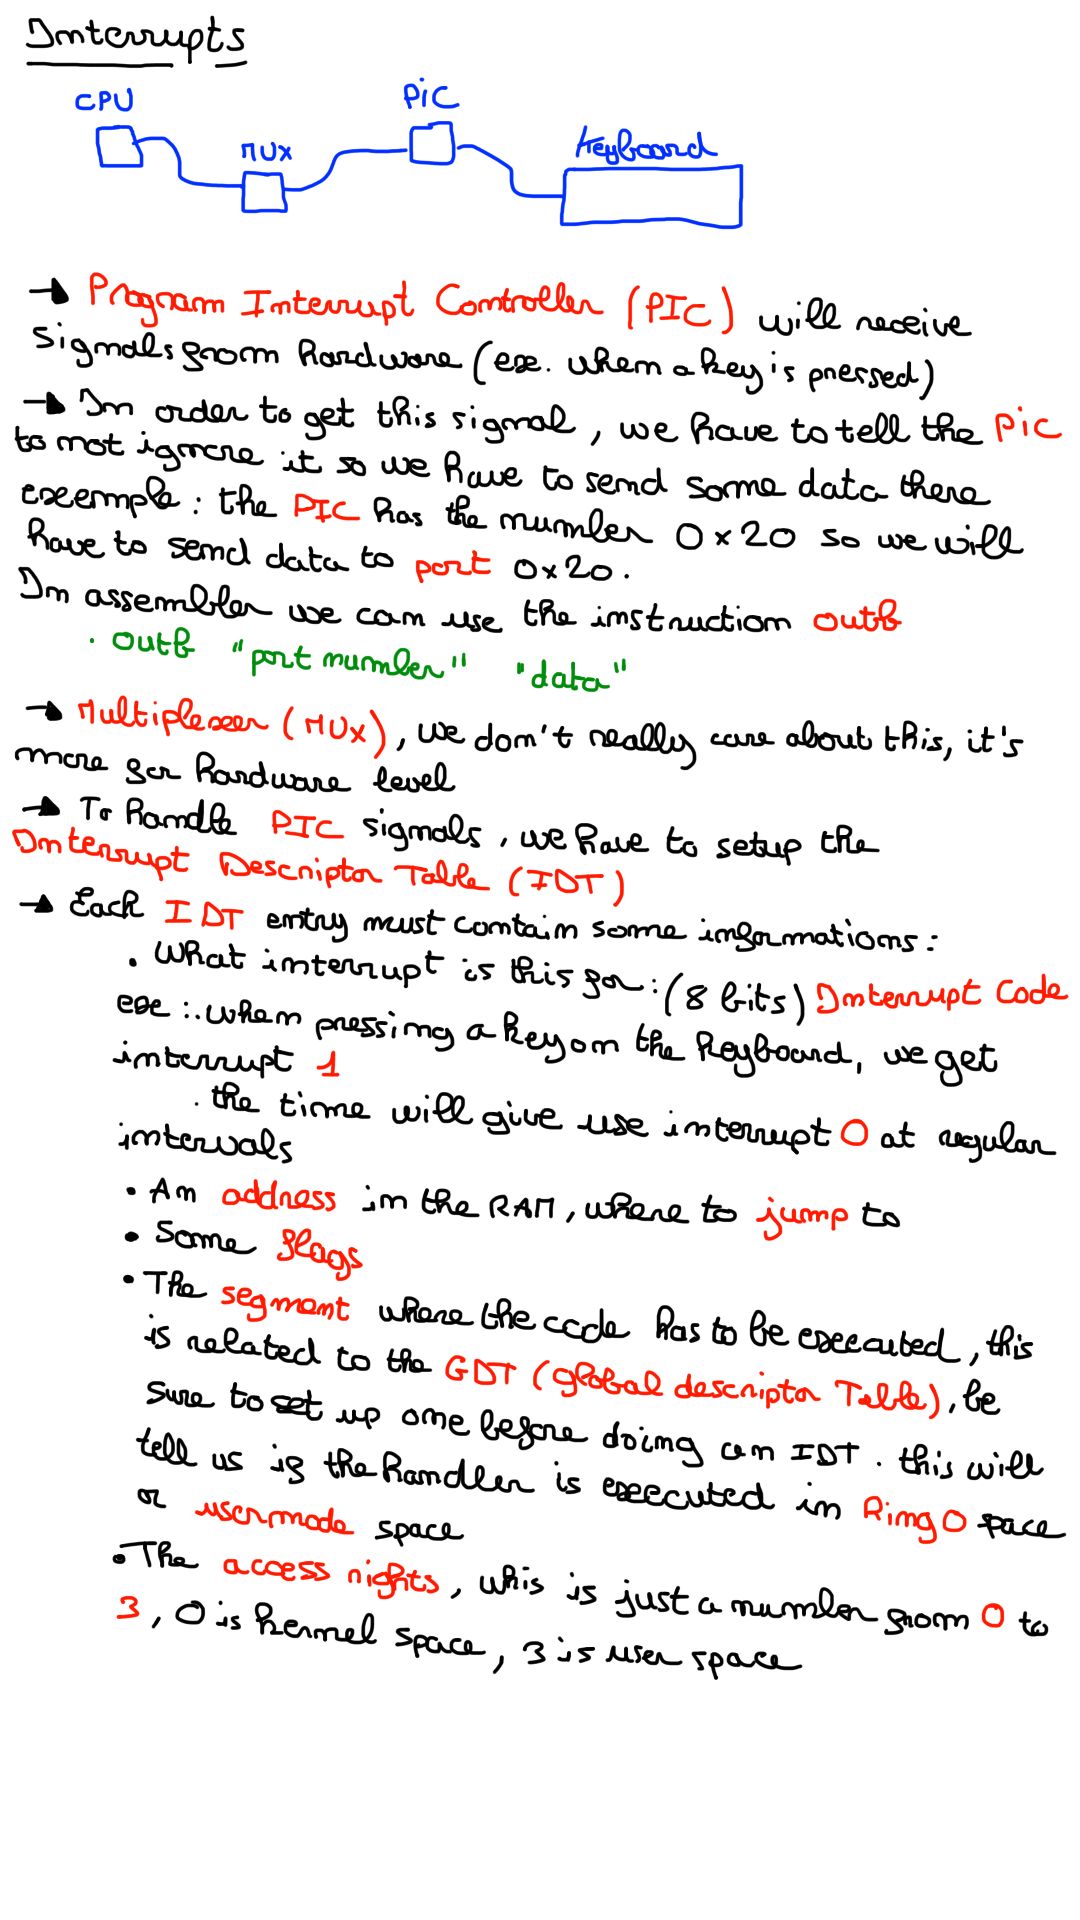 Interrupts
CPU
MUX
PiC
Keyboard
→ Program Interrupt Controller (PIC) will receive
signals from hardware (ex. when a key is pressed)
→ In order to get this signal, we have to tell the PiC
to not ignore it so we have to send some data there
exemple : the PIC has the number 0x20 so we will
have to send data to port 0x20.
In assembler we can use the instruction outb
· outb "port number" "data"
→ Multiplexer (MUX), we don't really care about this, it's
more for hardware level
→ To handle PIC signals, we have to setup the
Interrupt Descriptor Table (IDT)
→ Each IDT entry must contain some informations :
• What interrupt is this for : (8 bits) Interrupt Code
exe : . when pressing a key on the keyboard, we get
interrupt 1
. the time will give use interrupt 0 at regular
intervals
• An address in the RAM, where to jump to
• Some flags
• The segment where the code has to be executed, this
is related to the GDT (global descriptor Table), be
sure to set up one before doing an IDT. this will
tell us if the handler is executed in Ring 0 space
or usermode space
• The access rights, whis is just a number from 0 to
3, 0 is kernel space, 3 is user space